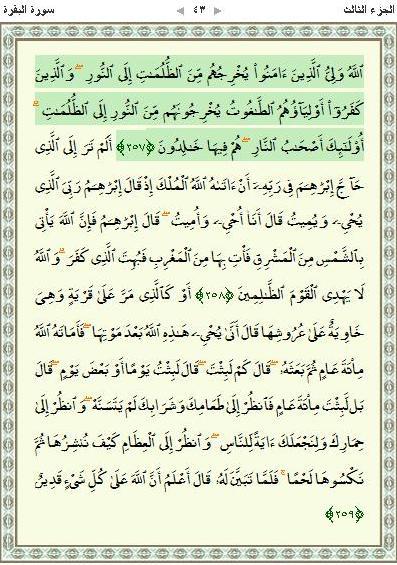 الجزء الثالث ◀ ٤٣ ▶ سورة البقرة
ٱللَّهُ وَلِىُّ ٱلَّذِينَ ءَامَنُوا۟ يُخْرِجُهُم مِّنَ ٱلظُّلُمَٰتِ إِلَى ٱلنُّورِ ۖ وَٱلَّذِينَ
كَفَرُوٓا۟ أَوْلِيَآؤُهُمُ ٱلطَّٰغُوتُ يُخْرِجُونَهُم مِّنَ ٱلنُّورِ إِلَى ٱلظُّلُمَٰتِ ۗ
أُو۟لَٰٓئِكَ أَصْحَٰبُ ٱلنَّارِ ۖ هُمْ فِيهَا خَٰلِدُونَ ﴿٢٥٧﴾ أَلَمْ تَرَ إِلَى ٱلَّذِى
حَآجَّ إِبْرَٰهِۦمَ فِى رَبِّهِۦٓ أَنْ ءَاتَىٰهُ ٱللَّهُ ٱلْمُلْكَ إِذْ قَالَ إِبْرَٰهِۦمُ رَبِّىَ ٱلَّذِى
يُحْىِۦ وَيُمِيتُ قَالَ أَنَا۠ أُحْىِۦ وَأُمِيتُ ۖ قَالَ إِبْرَٰهِۦمُ فَإِنَّ ٱللَّهَ يَأْتِى
بِٱلشَّمْسِ مِنَ ٱلْمَشْرِقِ فَأْتِ بِهَا مِنَ ٱلْمَغْرِبِ فَبُهِتَ ٱلَّذِى كَفَرَ ۗ وَٱللَّهُ
لَا يَهْدِى ٱلْقَوْمَ ٱلظَّٰلِمِينَ ﴿٢٥٨﴾ أَوْ كَٱلَّذِى مَرَّ عَلَىٰ قَرْيَةٍ وَهِىَ
خَاوِيَةٌ عَلَىٰ عُرُوشِهَا قَالَ أَنَّىٰ يُحْىِۦ هَٰذِهِ ٱللَّهُ بَعْدَ مَوْتِهَا ۖ فَأَمَاتَهُ ٱللَّهُ
مِا۟ئَةَ عَامٍ ثُمَّ بَعَثَهُۥ ۖ قَالَ كَمْ لَبِثْتَ ۖ قَالَ لَبِثْتُ يَوْمًا أَوْ بَعْضَ يَوْمٍ ۖ قَالَ
بَل لَّبِثْتَ مِا۟ئَةَ عَامٍ فَٱنظُرْ إِلَىٰ طَعَامِكَ وَشَرَابِكَ لَمْ يَتَسَنَّهْ ۖ وَٱنظُرْ إِلَىٰ
حِمَارِكَ وَلِنَجْعَلَكَ ءَايَةً لِّلنَّاسِ ۖ وَٱنظُرْ إِلَى ٱلْعِظَامِ كَيْفَ نُنشِزُهَا ثُمَّ
نَكْسُوهَا لَحْمًا ۚ فَلَمَّا تَبَيَّنَ لَهُۥ قَالَ أَعْلَمُ أَنَّ ٱللَّهَ عَلَىٰ كُلِّ شَىْءٍ قَدِيرٌ
﴿٢٥٩﴾